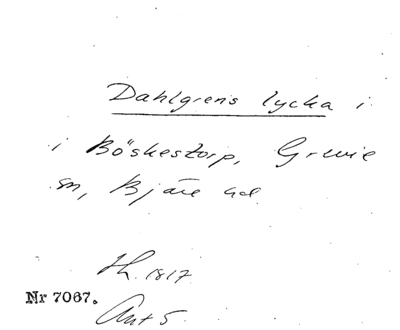 Dahlgrens lycka i
i Böskestorp, Grevie
sn, Bjäre hd.
Jh. 1817
Nr 7067.
Ant 5.